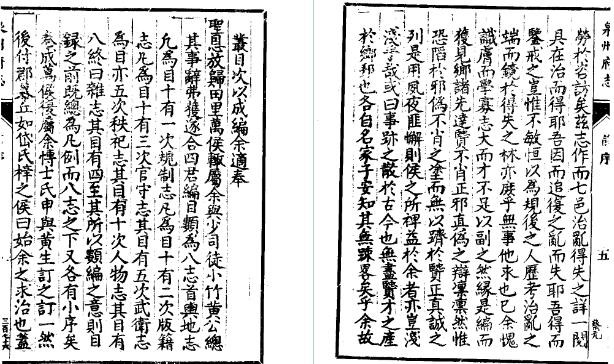 泉州府志
前序
五
勞於咨訪矣茲志作而七邑治亂得失之詳一開
具在治而得耶吾因而追復之亂而失耶吾得而
鑒戒之豈惟不敏恒以為規後之人歷考治亂之
端而鏡於得失之林亦庶乎無事他求也已余愧
識膚而學寡志大而才不足以副之然緣是編而
獲見鄉諸先達賢不肖正邪真偽之辯凜凜然惟
恐陷於邪偽不肖之塗而無以躋於賢正真誠之
列是用夙夜匪懈則侯之所裨益於余者亦豈淺
淺哉或曰事跡之散於古今也無盡賢才之產
於鄉邦也各自名家子安知其無疎畧矣乎余故
叢目次以成編余適奉
聖恩放歸田里萬侯輙屬余與少司徒小竹黃公總
其事辭弗獲遂合四君編目類為八志首輿地志
凡為目十有一次規制志凡為目十有二次版籍
志凡為目十有三次官守志其目有五次武衛志
為目亦五次秩祀志其目有十次人物志其目有
八終曰雜志其目有四至其所以類編之意則目
錄之前既總為凡例而八志之下又各有小序矣
卷成萬侯復屬余博士氏申與黃生訂之訂一然
後付郡丞丘如岱氏梓之侯曰始余之求治也蓋